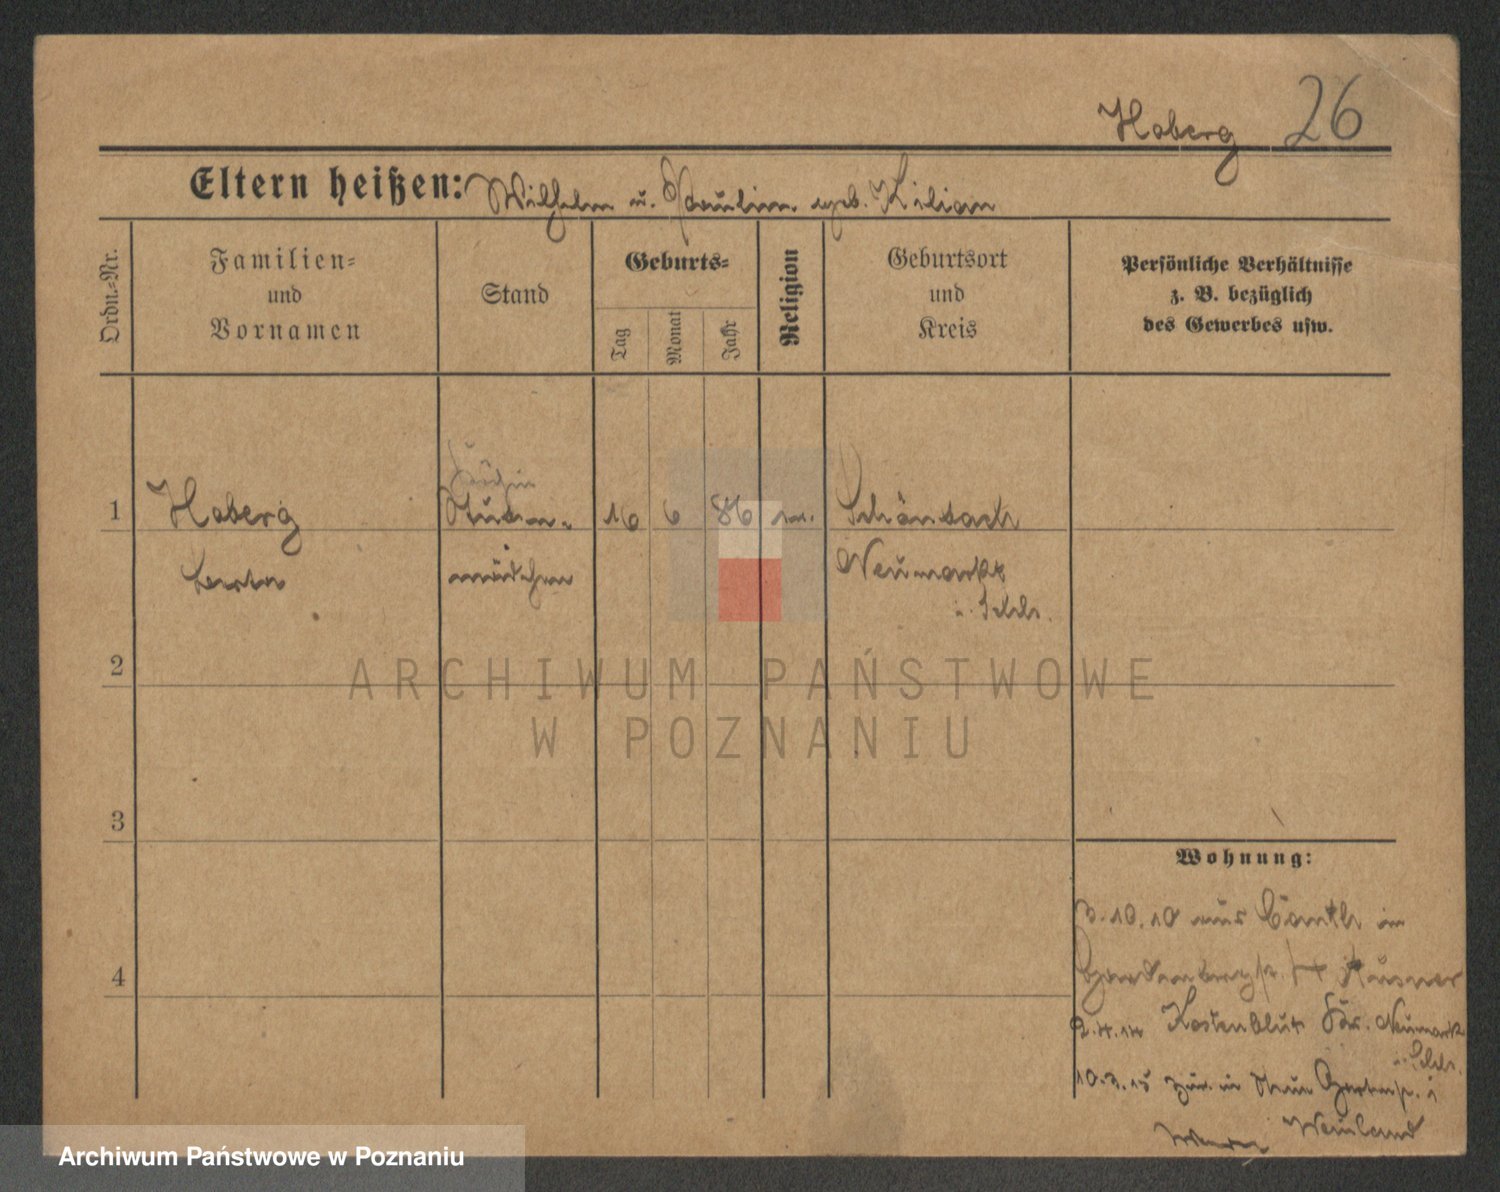 Hoberg 26
Eltern heißen: Wilhelm u. Pauline geb. Kilian
Ordn.=Nr.
Familien=
und
Vornamen
Stand
Geburts=
Tag
Monat
Jahr
Religion
Geburtsort
und
Kreis
Persönliche Verhältnisse
z. B. bezüglich
des Gewerbes usw.
Köchin
1 Hoberg Stuben- 16 6 86 ev. Schönbach
Berta mädchen Neumarkt
i. Schls.
2
3
4
Wohnung:
3.10.10 aus Canth in
Gartenstr. 14
2.4.14 Kostenblut Kr. Neumarkt
i. Schls.
10.3.15 zur. in Neue Gartenstr.
ARCHIWUM PAŃSTWOWE
W POZNANIU
Archiwum Państwowe w Poznaniu